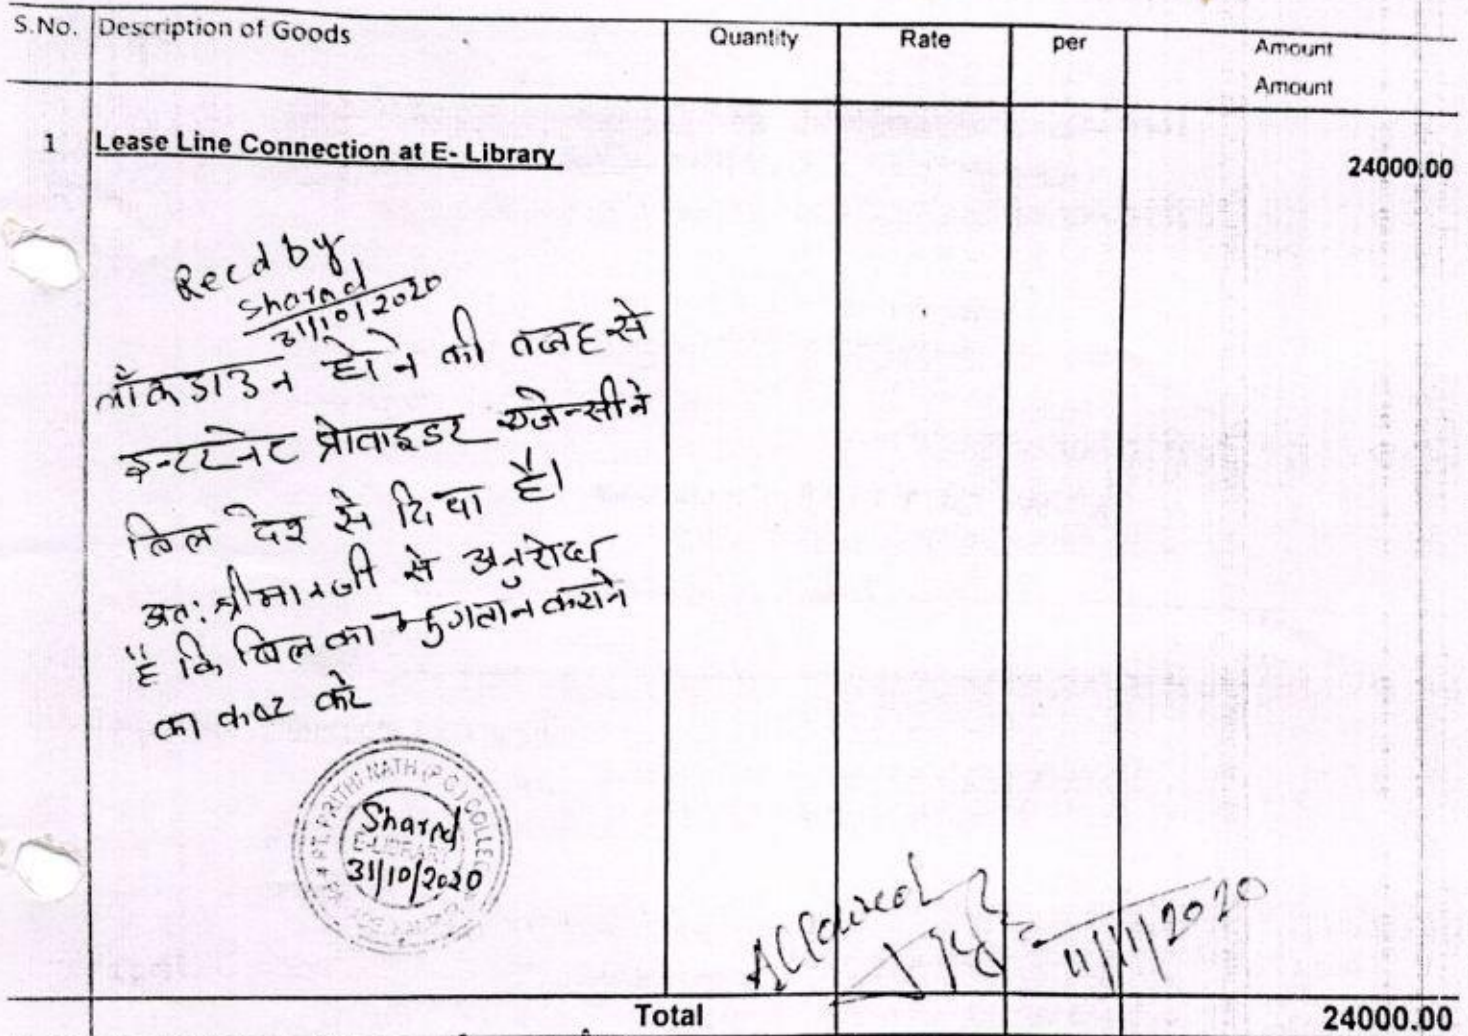 S.No. Description of Goods Quantity Rate per Amount
Amount
1 Lease Line Connection at E- Library 24000.00
Recd by
Sharad
31/10/2020
लॉकडाउन होने की वजह से
इन्टरनेट प्रोवाइडर एजेन्सी ने
बिल देर से दिया है।
अत: श्रीमानजी से अनुरोध
है कि बिल का भुगतान कराने
का कष्ट करे
PT. PRITHI NATH (P.G.) COLLEGE
E-LIBRARY
Sharad
31/10/2020
11/11/2020
Total 24000.00